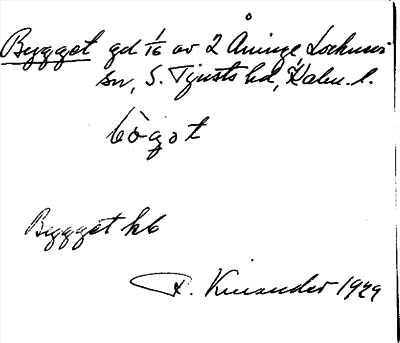 Bygget gd 1/16 av 2 Åninge Locknevi
sn, S. Tjusts hd, Kalm. l.
bògət
Bygget kb
R. Kinander 1929